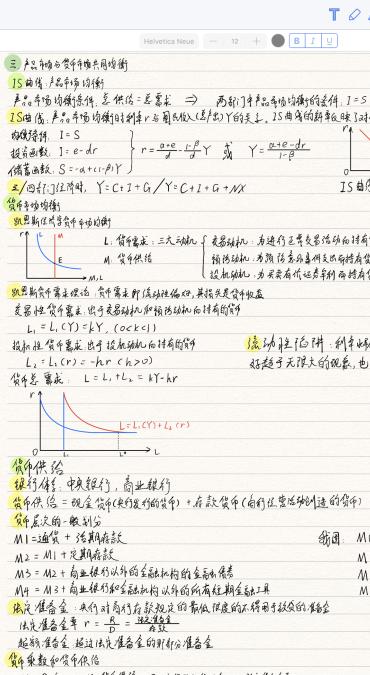 Helvetica Neue 12 B I U
三 产品市场与货币市场共同均衡
IS曲线:产品市场均衡
产品市场均衡条件:总供给=总需求 ⇒ 两部门中产品市场均衡的条件:I=S
IS曲线:产品市场均衡时利率r与国民收入(总产出)Y的关系。IS曲线的斜率反映了
均衡条件:I=S
投资函数:I=e-dr
储蓄函数:S=-a+(1-β)Y
r=(a+e)/d-(1-β)/d Y 或 Y=(a+e-dr)/(1-β)
三/四部门经济时,Y=C+I+G/Y=C+I+G+NX
IS曲
货币市场均衡
凯恩斯经济学货币市场均衡
r L M E M,L
L:货币需求:三大动机
M:货币供给
交易动机:为进行正常交易活动而持有
预防动机:为预防意外支出而持有
投机动机:为买卖有价证券获利而持有
凯恩斯货币需求理论:货币需求即流动性偏好,其损失是货币收益
交易性货币需求:出于交易动机和预防动机而持有的货币
L₁=L₁(Y)=kY,(0<k<1)
投机性货币需求:出于投机动机而持有的货币
L₂=L₂(r)=-hr(h>0)
货币总需求:L=L₁+L₂=kY-hr
流动性陷阱:利率
好趋于无限大的现象,也
r L=L₁(Y)+L₂(r) L
货币供给
银行体系:中央银行,商业银行
货币供给=现金货币(央行发行的货币)+存款货币(商行经营活动创造的货币)
货币层次的一般划分
M1=通货+活期存款
我国:M
M2=M1+定期存款
M
M3=M2+商业银行以外的金融机构的金融债券
M
M4=M3+商业银行和金融机构以外的所有短期金融工具
M
法定准备金:央行对商行存款规定的最低限度的不得用于放贷的准备金
法定准备金率 r=R/D=法定准备金/存款
超额准备金:超过法定准备金的那部分准备金
货币乘数和货币供给